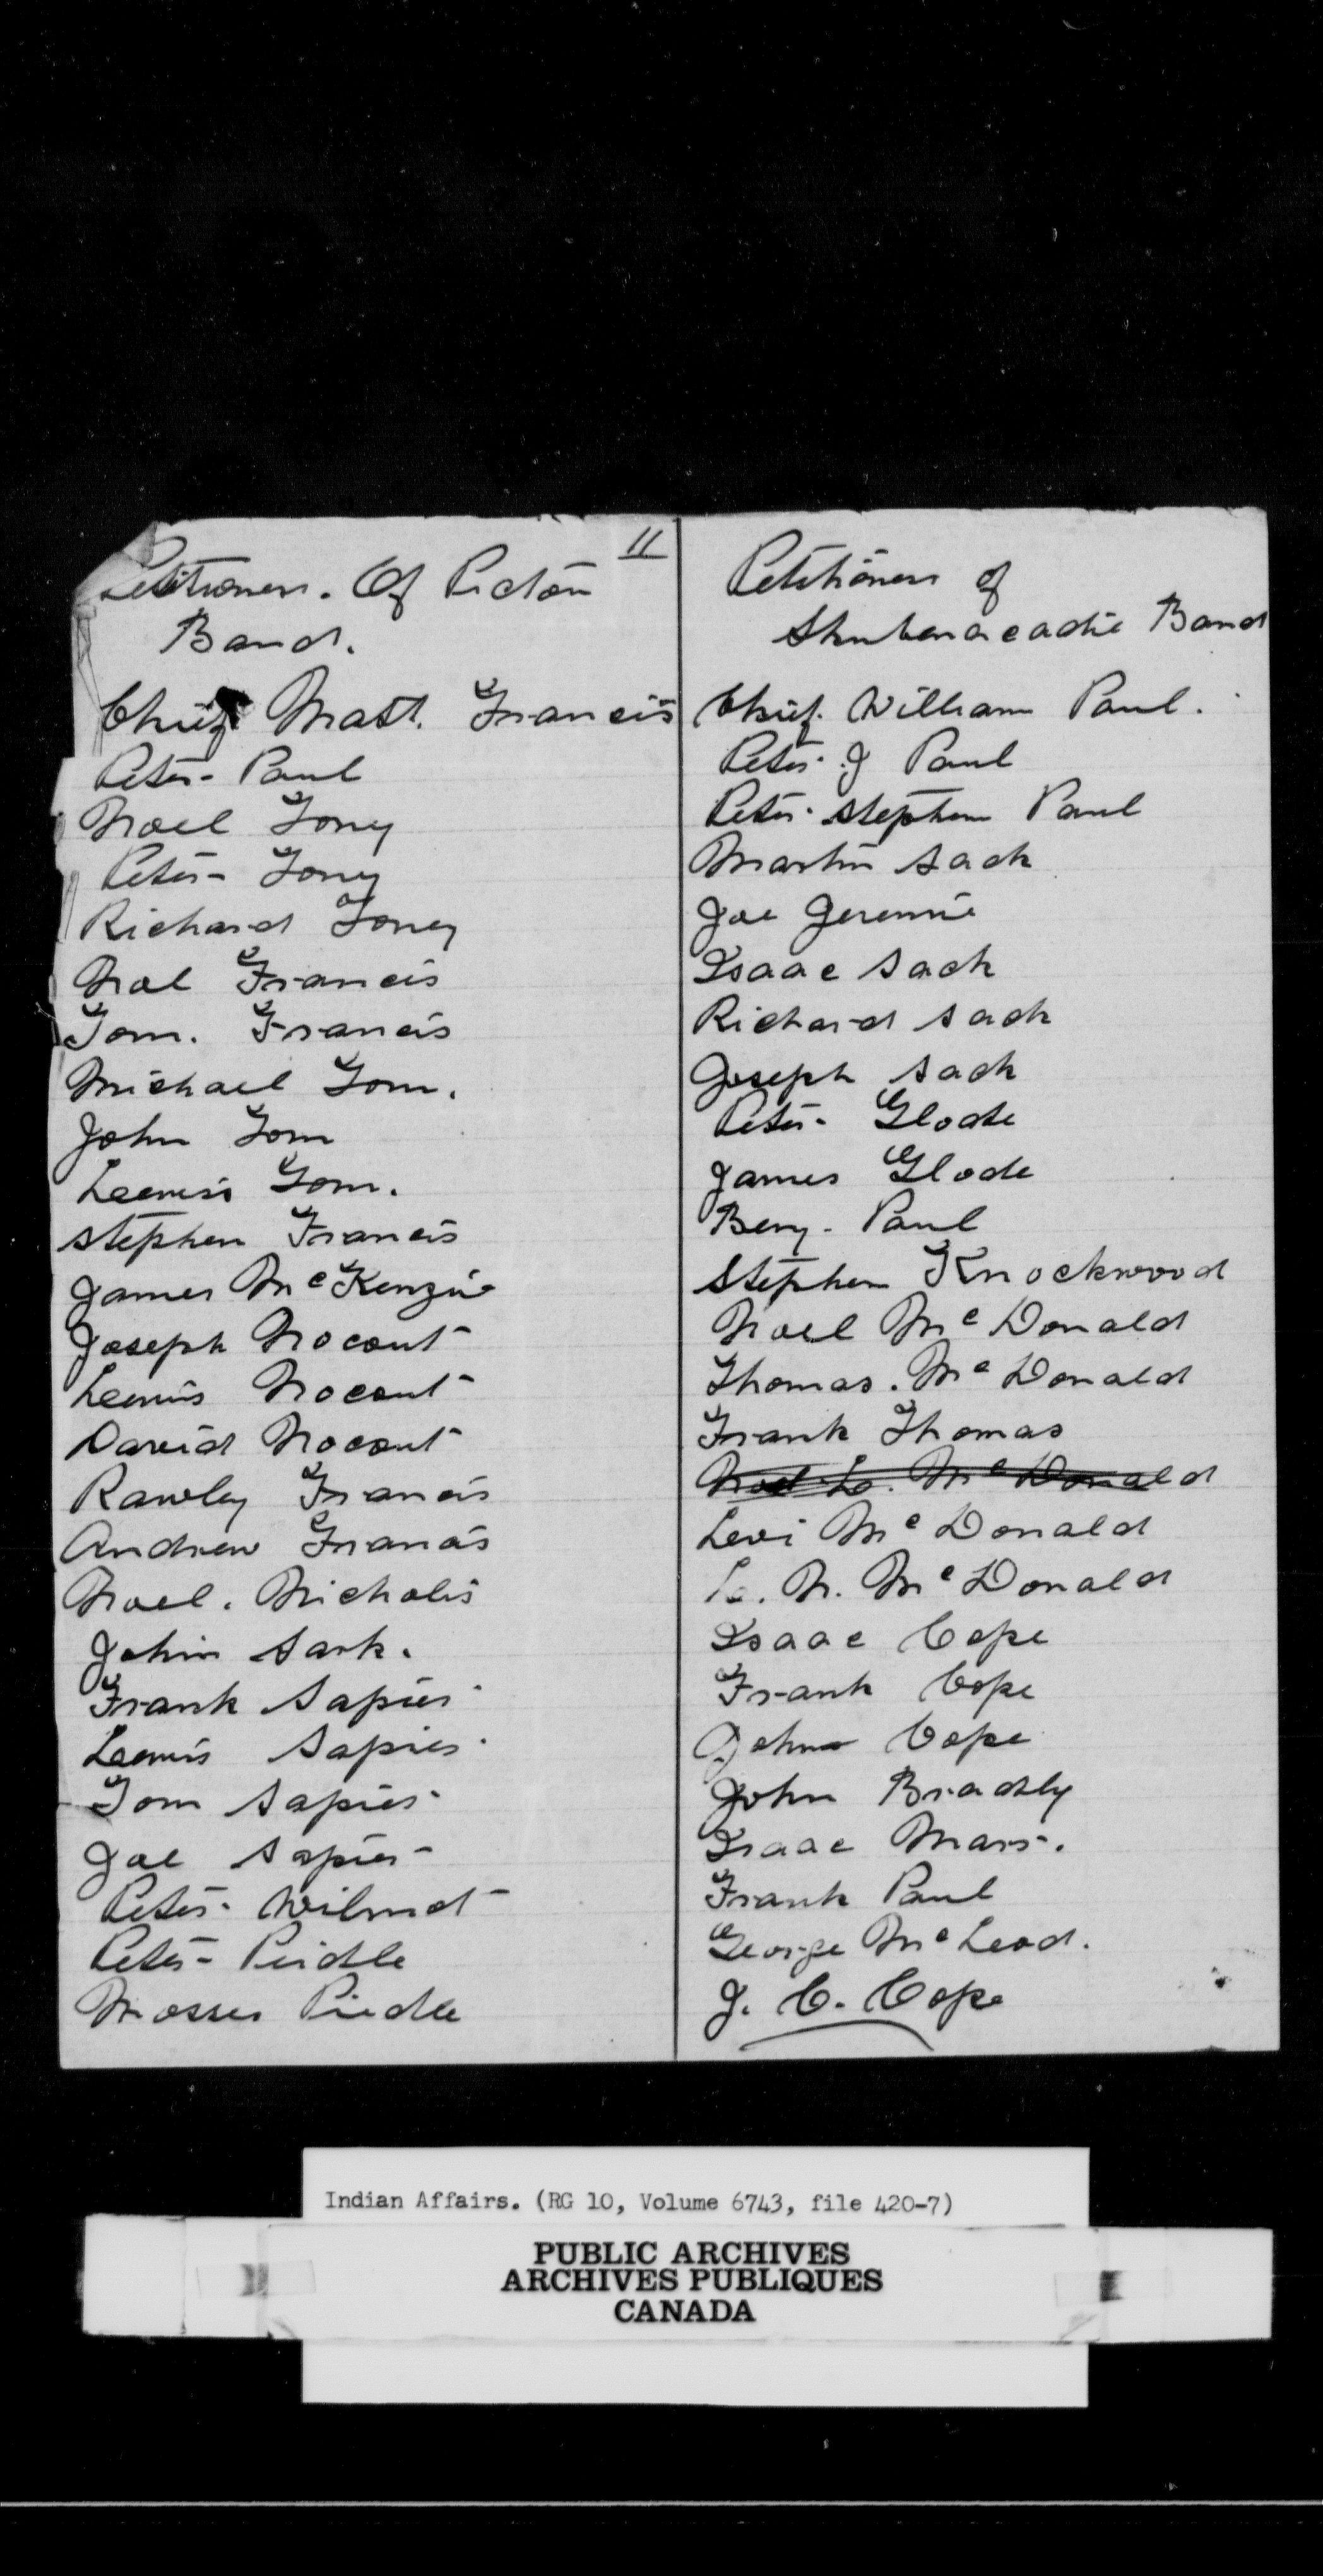 11
Petitioners. Of Pictou
Band.
Chief Matt. Francis
Peter Paul
Noel Toney
Peter Toney
Richard Toney
Noel Francis
Tom. Francis
Michael Tom.
John Tom
Leewis Tom.
Stephen Francis
James McKenzie
Joseph Nocout
Leewis Nocout
David Nocout
Rawley Francis
Andrew Francis
Noel. Nicholis
John Sark.
Frank Sapier
Leewis Sapier
Tom Sapier
Joe Sapier
Peter Wilmot
Peter Pirdle
Mosses Piedle
Petitioners of
Shubenacadie Band
Chief. William Paul.
Peter J Paul
Peter Stephen Paul
Martin Sack
Joe Jeremie
Isaac Sack
Richard Sack
Joseph Sack
Peter Glode
James Glode
Benj. Paul
Stephen Knockwood
Noel McDonald
Thomas. McDonald
Frank Thomas
Noel Lo. McDonald
Levi McDonald
Lo. N. McDonald
Isaac Cope
Frank Cope
John Cope
John Bradly
Isaac Mars.
Frank Paul
George McLeod.
J. C. Cope
Indian Affairs. (RG 10, Volume 6743, file 420-7)
PUBLIC ARCHIVES
ARCHIVES PUBLIQUES
CANADA